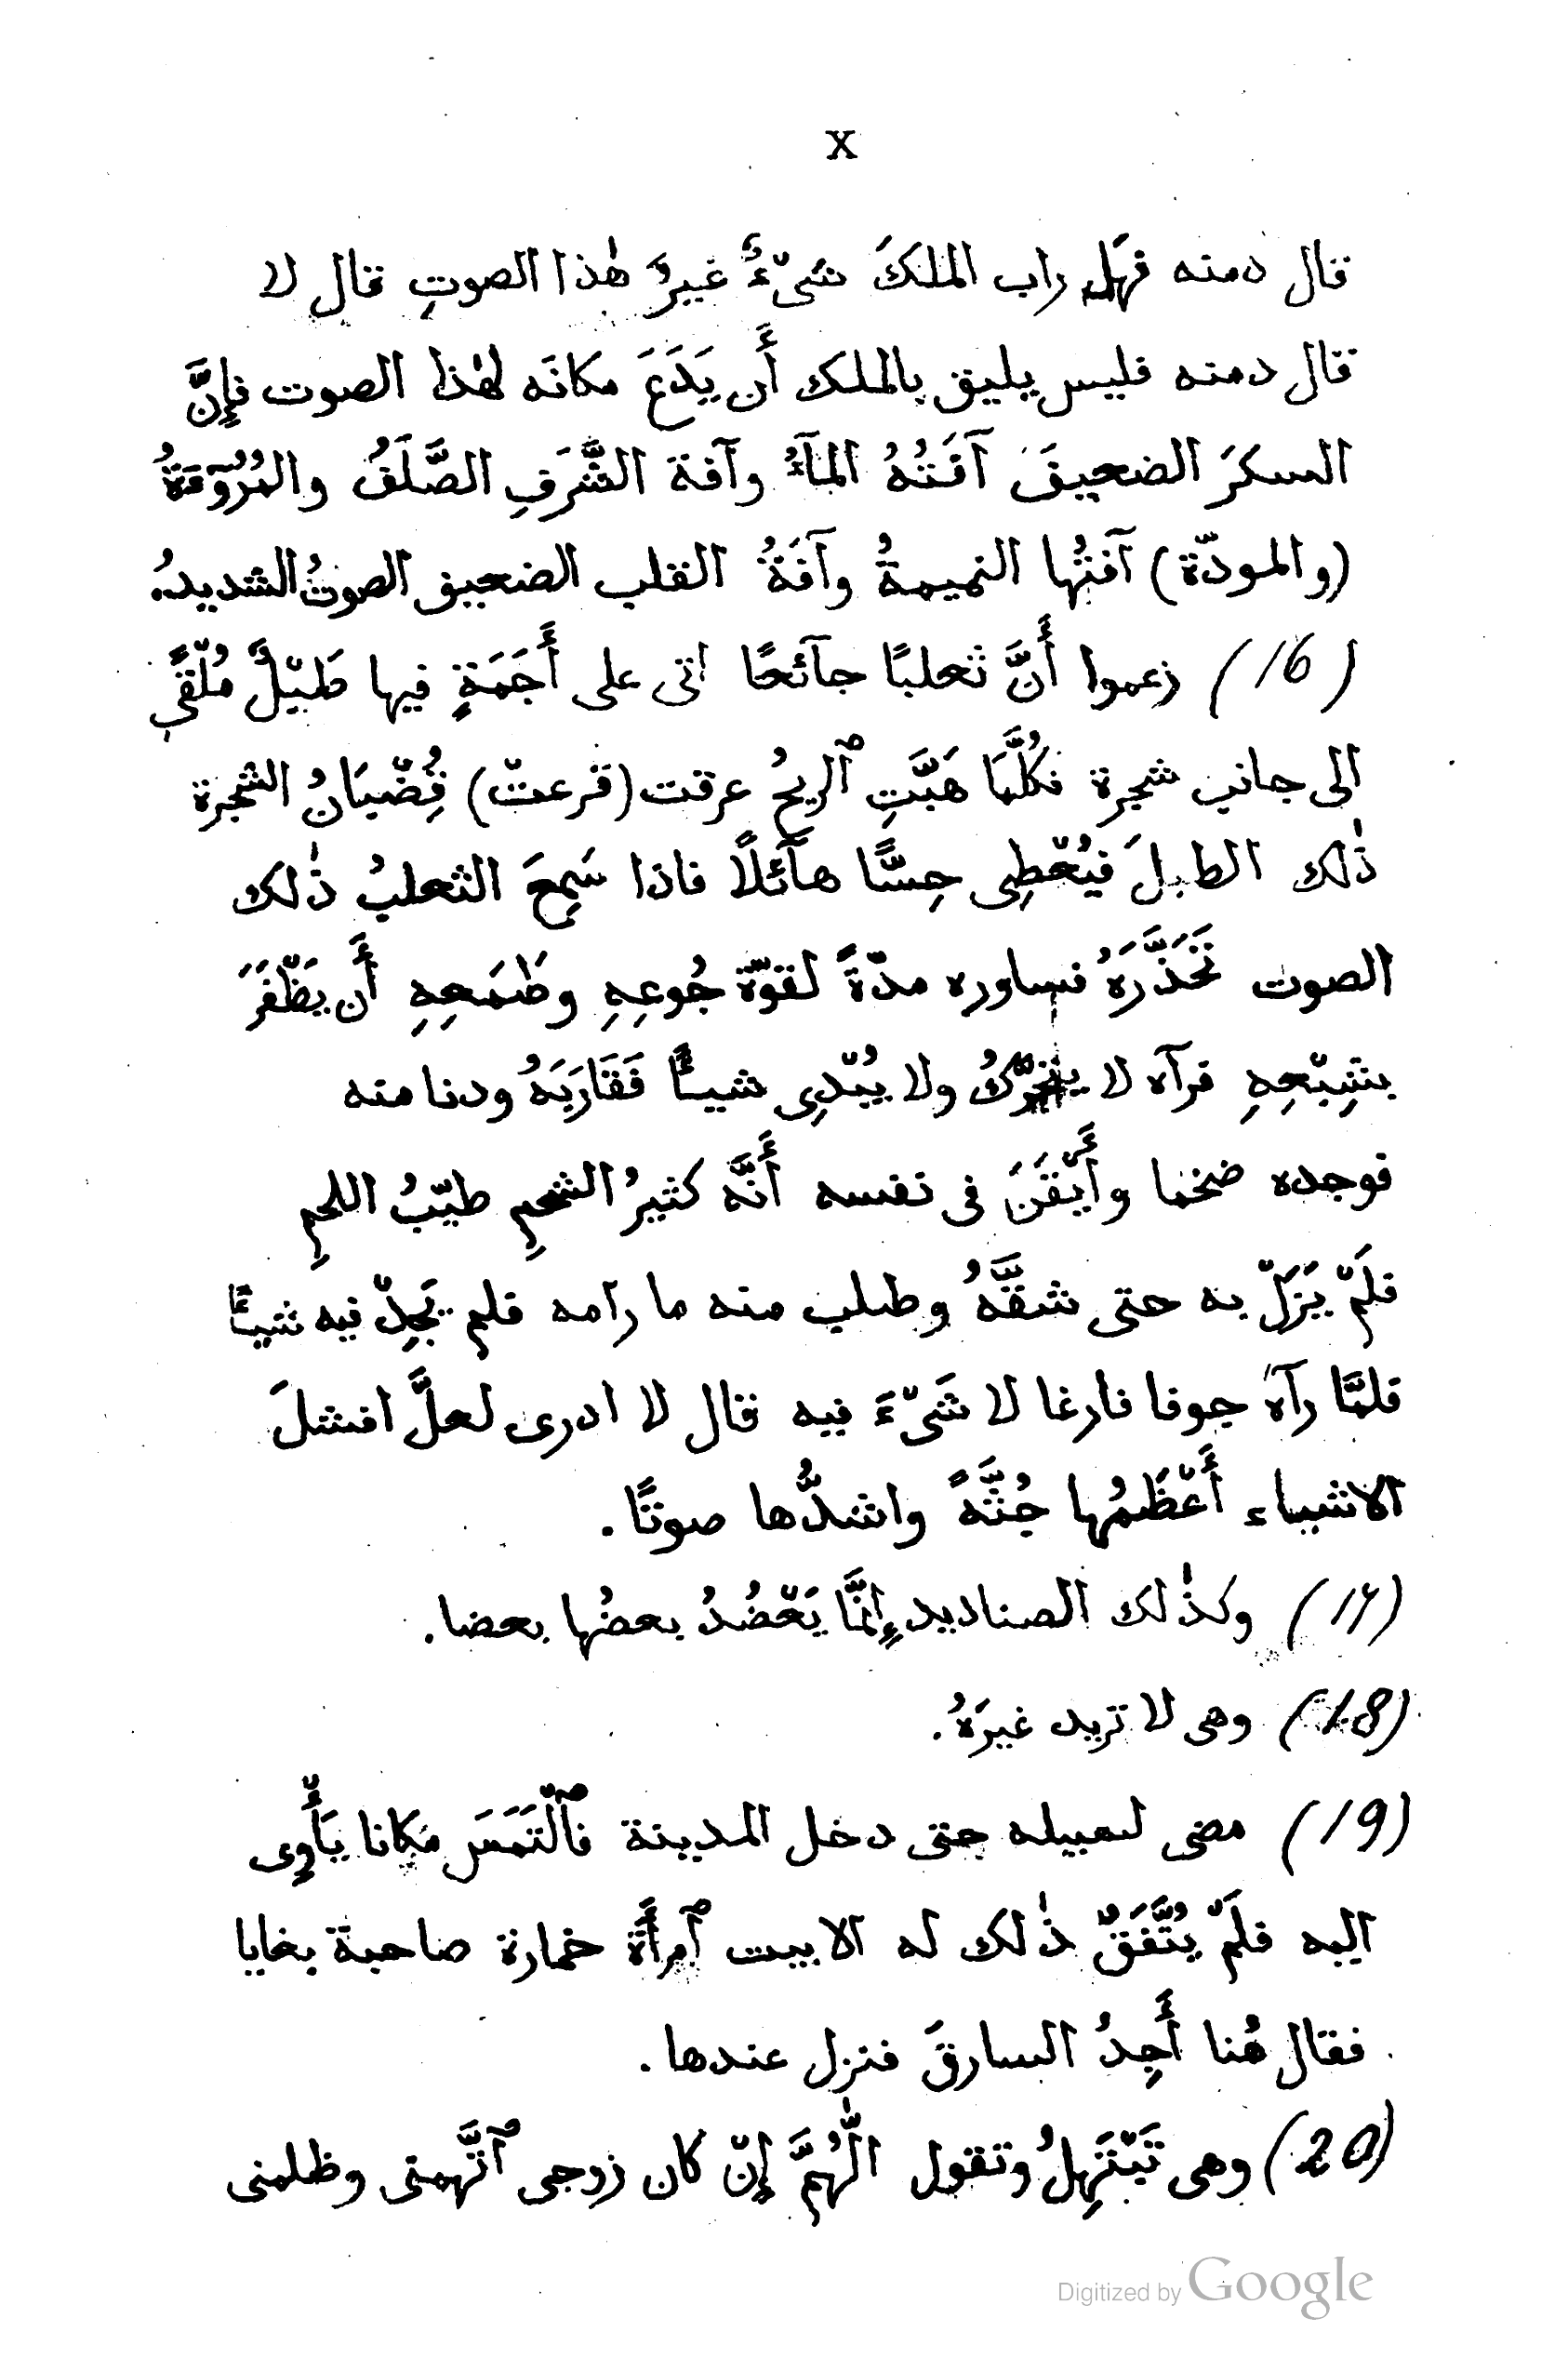 X
قال دمنه فهل راب الملكَ شىْءٌ غيرُ هٰذا الصوتِ قال لا
قال دمنه فليس يليق بالملك أَن يَدَعَ مكانَه لهٰذا الصوت فإِنَّ
السكرَ الضعيفَ آفَتُهُ المآءُ وآفة الشَّرَفِ الصَّلَفُ والمُرُوْءَةُ
(والمودّة) آفتُها النميمةُ وآفَةُ القلب الضعيف الصوتُ الشديدُ.
(16) زعموا أَنَّ ثعلبًا جآئعًا اتى على أَجَمَةٍ فيها طَبْلٌ مُلْقًى
الى جانب شجرة فكُلَّمَا هَبَّتِ ٱلريحُ عرقت (قرعتْ) قُِضْبَانُ الشجرة
ذٰلك الطبلَ فيُعْطِى حِسًّا هآئلًا فاذا سَمِعَ الثعلبُ ذٰلك
الصوت تَحَذَّرَهُ فساوره مدّةً لقوّة جُوعِهِ وطَمَعِهِ أَن يَظْفَرَ
بشِبْعِهِ فرآه لا يتحرّكُ ولا يُبْدِى شيـًٔا فَقَارَبَهُ ودنا منه
فوجده ضخما وأَيْقَنَ فى نفسه أَنَّه كثيرُ الشحمِ طيّبُ اللحمِ
فلَمْ يَزَلْ به حتى شقَّهُ وطلب منه ما رامه فلم يَجِدْ فيه شيـًٔا
فلمَّا رآهُ جوفا فارغا لا شَىْءَ فيه قال لا ادرى لعلَّ افشلَ
الاشياء أَعْظَمُها جُثَّةً واشدُّها صوتًا.
(17) وكذٰلك الصناديد إِنَّمَا يَعْضُدُ بعضُها بعضا.
(18) وهى لا تريد غيرَهُ.
(19) مضى لسبيله حتى دخل المدينة فٱلْتَمَسَ مكانا يَأْوِى
اليه فلَمْ يَتَّفَقْ ذٰلك له الا بيت ٱمرأَة خمارة صاحبة بغايا
فقال هُنا أَجِدُ السارقَ فنزل عندها.
(20) وهى تَبْتَهِلُ وتقول الّٰلهُمَّ إِنْ كان زوجى ٱتَّهمتى وظلمنى
Digitized by Google